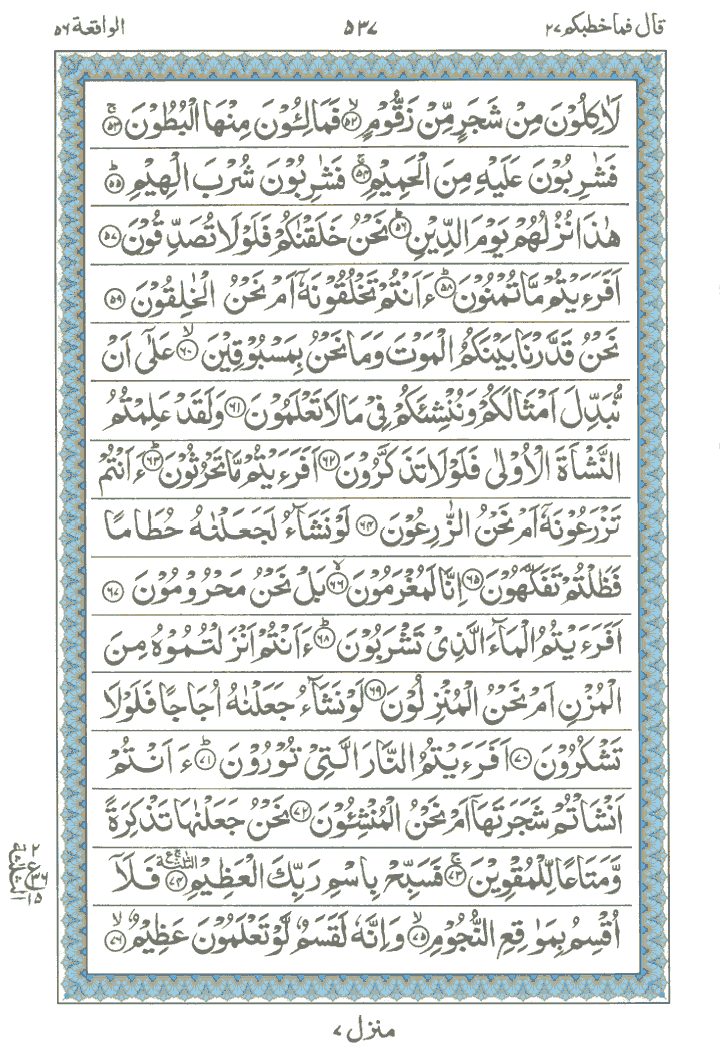 قال فما خطبكم ٢٧ ٥٣٧ الواقعة ٥٦
لَاٰكِلُوْنَ مِنْ شَجَرٍ مِّنْ زَقُّوْمٍۙ ﴿٥٢﴾ فَمَالِـُٔوْنَ مِنْهَا الْبُطُوْنَۚ ﴿٥٣﴾
فَشٰرِبُوْنَ عَلَيْهِ مِنَ الْحَمِيْمِۚ ﴿٥٤﴾ فَشٰرِبُوْنَ شُرْبَ الْهِيْمِؕ ﴿٥٥﴾
هٰذَا نُزُلُهُمْ يَوْمَ الدِّيْنِؕ ﴿٥٦﴾ نَحْنُ خَلَقْنٰكُمْ فَلَوْلَا تُصَدِّقُوْنَ ﴿٥٧﴾
اَفَرَءَيْتُمْ مَّا تُمْنُوْنَؕ ﴿٥٨﴾ ءَاَنْتُمْ تَخْلُقُوْنَهٗۤ اَمْ نَحْنُ الْخٰلِقُوْنَ ﴿٥٩﴾
نَحْنُ قَدَّرْنَا بَيْنَكُمُ الْمَوْتَ وَمَا نَحْنُ بِمَسْبُوْقِيْنَۙ ﴿٦٠﴾ عَلٰۤى اَنْ
نُّبَدِّلَ اَمْثَالَكُمْ وَنُنْشِئَكُمْ فِيْ مَا لَا تَعْلَمُوْنَ ﴿٦١﴾ وَلَقَدْ عَلِمْتُمُ
النَّشْاَةَ الْاُوْلٰى فَلَوْلَا تَذَكَّرُوْنَ ﴿٦٢﴾ اَفَرَءَيْتُمْ مَّا تَحْرُثُوْنَؕ ﴿٦٣﴾ ءَاَنْتُمْ
تَزْرَعُوْنَهٗۤ اَمْ نَحْنُ الزّٰرِعُوْنَ ﴿٦٤﴾ لَوْ نَشَآءُ لَجَعَلْنٰهُ حُطَامًا
فَظَلْتُمْ تَفَكَّهُوْنَ ﴿٦٥﴾ اِنَّا لَمُغْرَمُوْنَۙ ﴿٦٦﴾ بَلْ نَحْنُ مَحْرُوْمُوْنَ ﴿٦٧﴾
اَفَرَءَيْتُمُ الْمَآءَ الَّذِيْ تَشْرَبُوْنَؕ ﴿٦٨﴾ ءَاَنْتُمْ اَنْزَلْتُمُوْهُ مِنَ
الْمُزْنِ اَمْ نَحْنُ الْمُنْزِلُوْنَ ﴿٦٩﴾ لَوْ نَشَآءُ جَعَلْنٰهُ اُجَاجًا فَلَوْلَا
تَشْكُرُوْنَ ﴿٧٠﴾ اَفَرَءَيْتُمُ النَّارَ الَّتِيْ تُوْرُوْنَؕ ﴿٧١﴾ ءَاَنْتُمْ
اَنْشَاْتُمْ شَجَرَتَهَاۤ اَمْ نَحْنُ الْمُنْشِـُٔوْنَ ﴿٧٢﴾ نَحْنُ جَعَلْنٰهَا تَذْكِرَةً
وَّمَتَاعًا لِّلْمُقْوِيْنَۚ ﴿٧٣﴾ فَسَبِّحْ بِاسْمِ رَبِّكَ الْعَظِيْمِ ﴿٧٤﴾ فَلَاۤ
اُقْسِمُ بِمَوٰقِعِ النُّجُوْمِۙ ﴿٧٥﴾ وَاِنَّهٗ لَقَسَمٌ لَّوْ تَعْلَمُوْنَ عَظِيْمٌۙ ﴿٧٦﴾
٢
ع
٣٦
١٥
منزل ٧